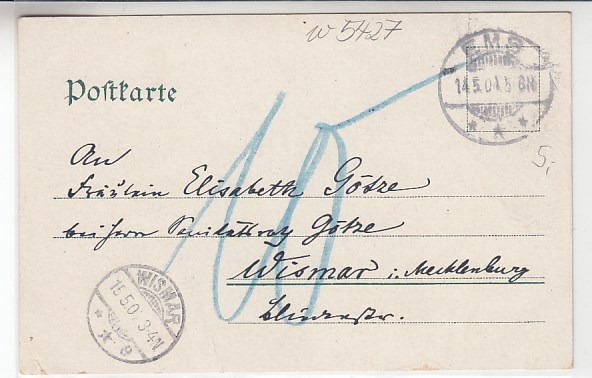 w 5427
EMS
14.5.04. 5-6N
Postkarte
5,-
10
An
Fräulein Elisabeth Götze
bei Herrn Sanitätsrat Götze
Wismar i. Mecklenburg
WISMAR
15.5.0 3-4N